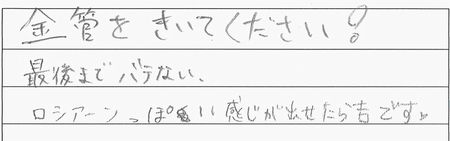 金管をきいてください!
最後までバテない、
ロシアーンっぽい感じが出せたら吉です。